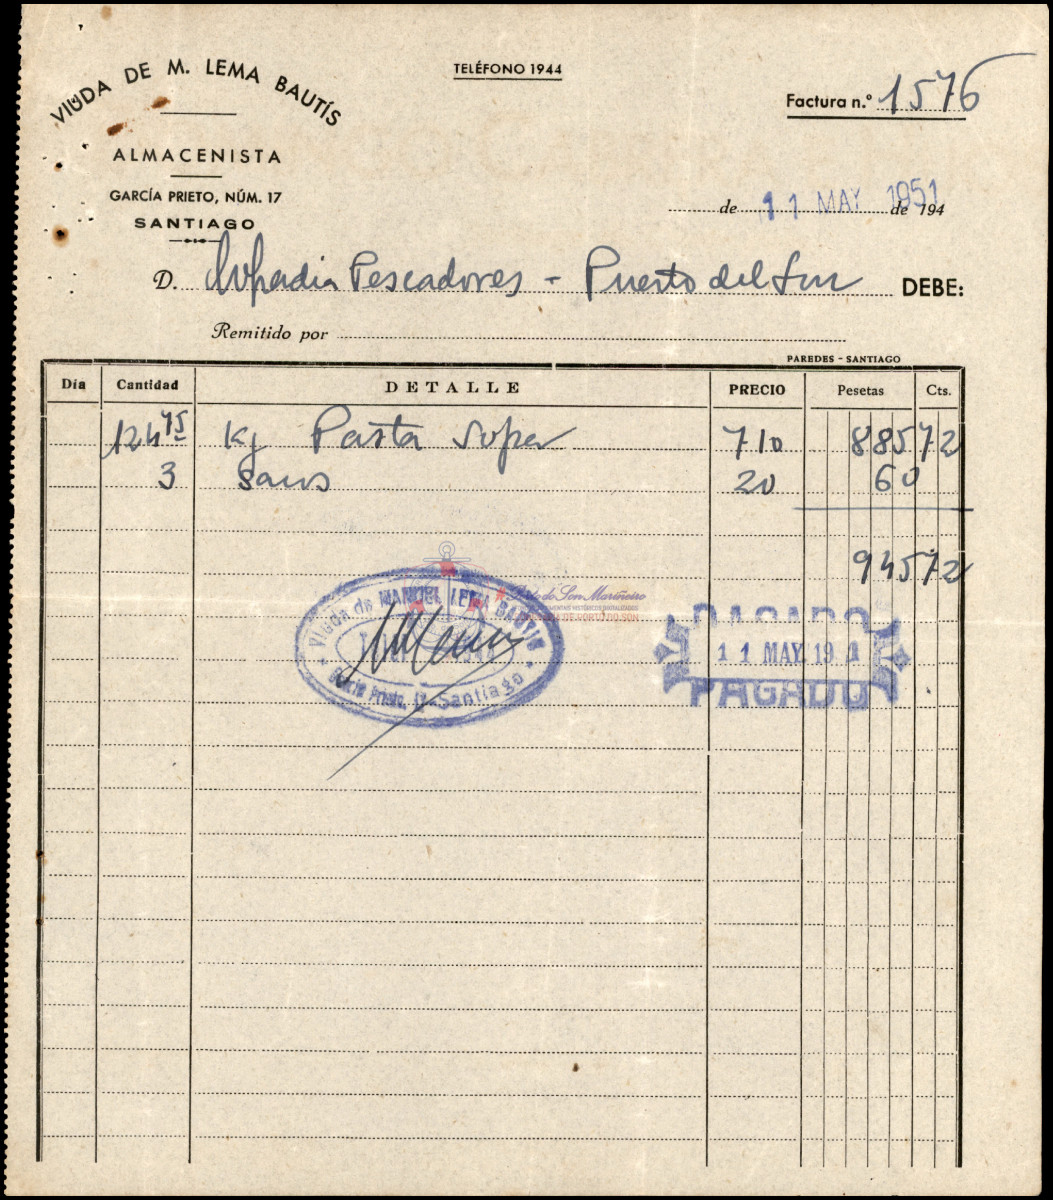 VIUDA DE M. LEMA BAUTÍS
TELÉFONO 1944
Factura n.º 1576
ALMACENISTA
GARCÍA PRIETO, NÚM. 17
SANTIAGO
de 11 MAY 1951 de 194
D. Cofradia Pescadores - Puerto del Son DEBE:
Remitido por
PAREDES - SANTIAGO
Día Cantidad DETALLE PRECIO Pesetas Cts.
124 75 Kg Pasta Super 7 10 885 72
3 Sacos 20 60
945 72
Porto do Son Mariñeiro
Viuda de MANUEL LEMA BAUTIS
García Prieto, 17 - Santiago
PAGADO
11 MAY 19 1
PAGADO